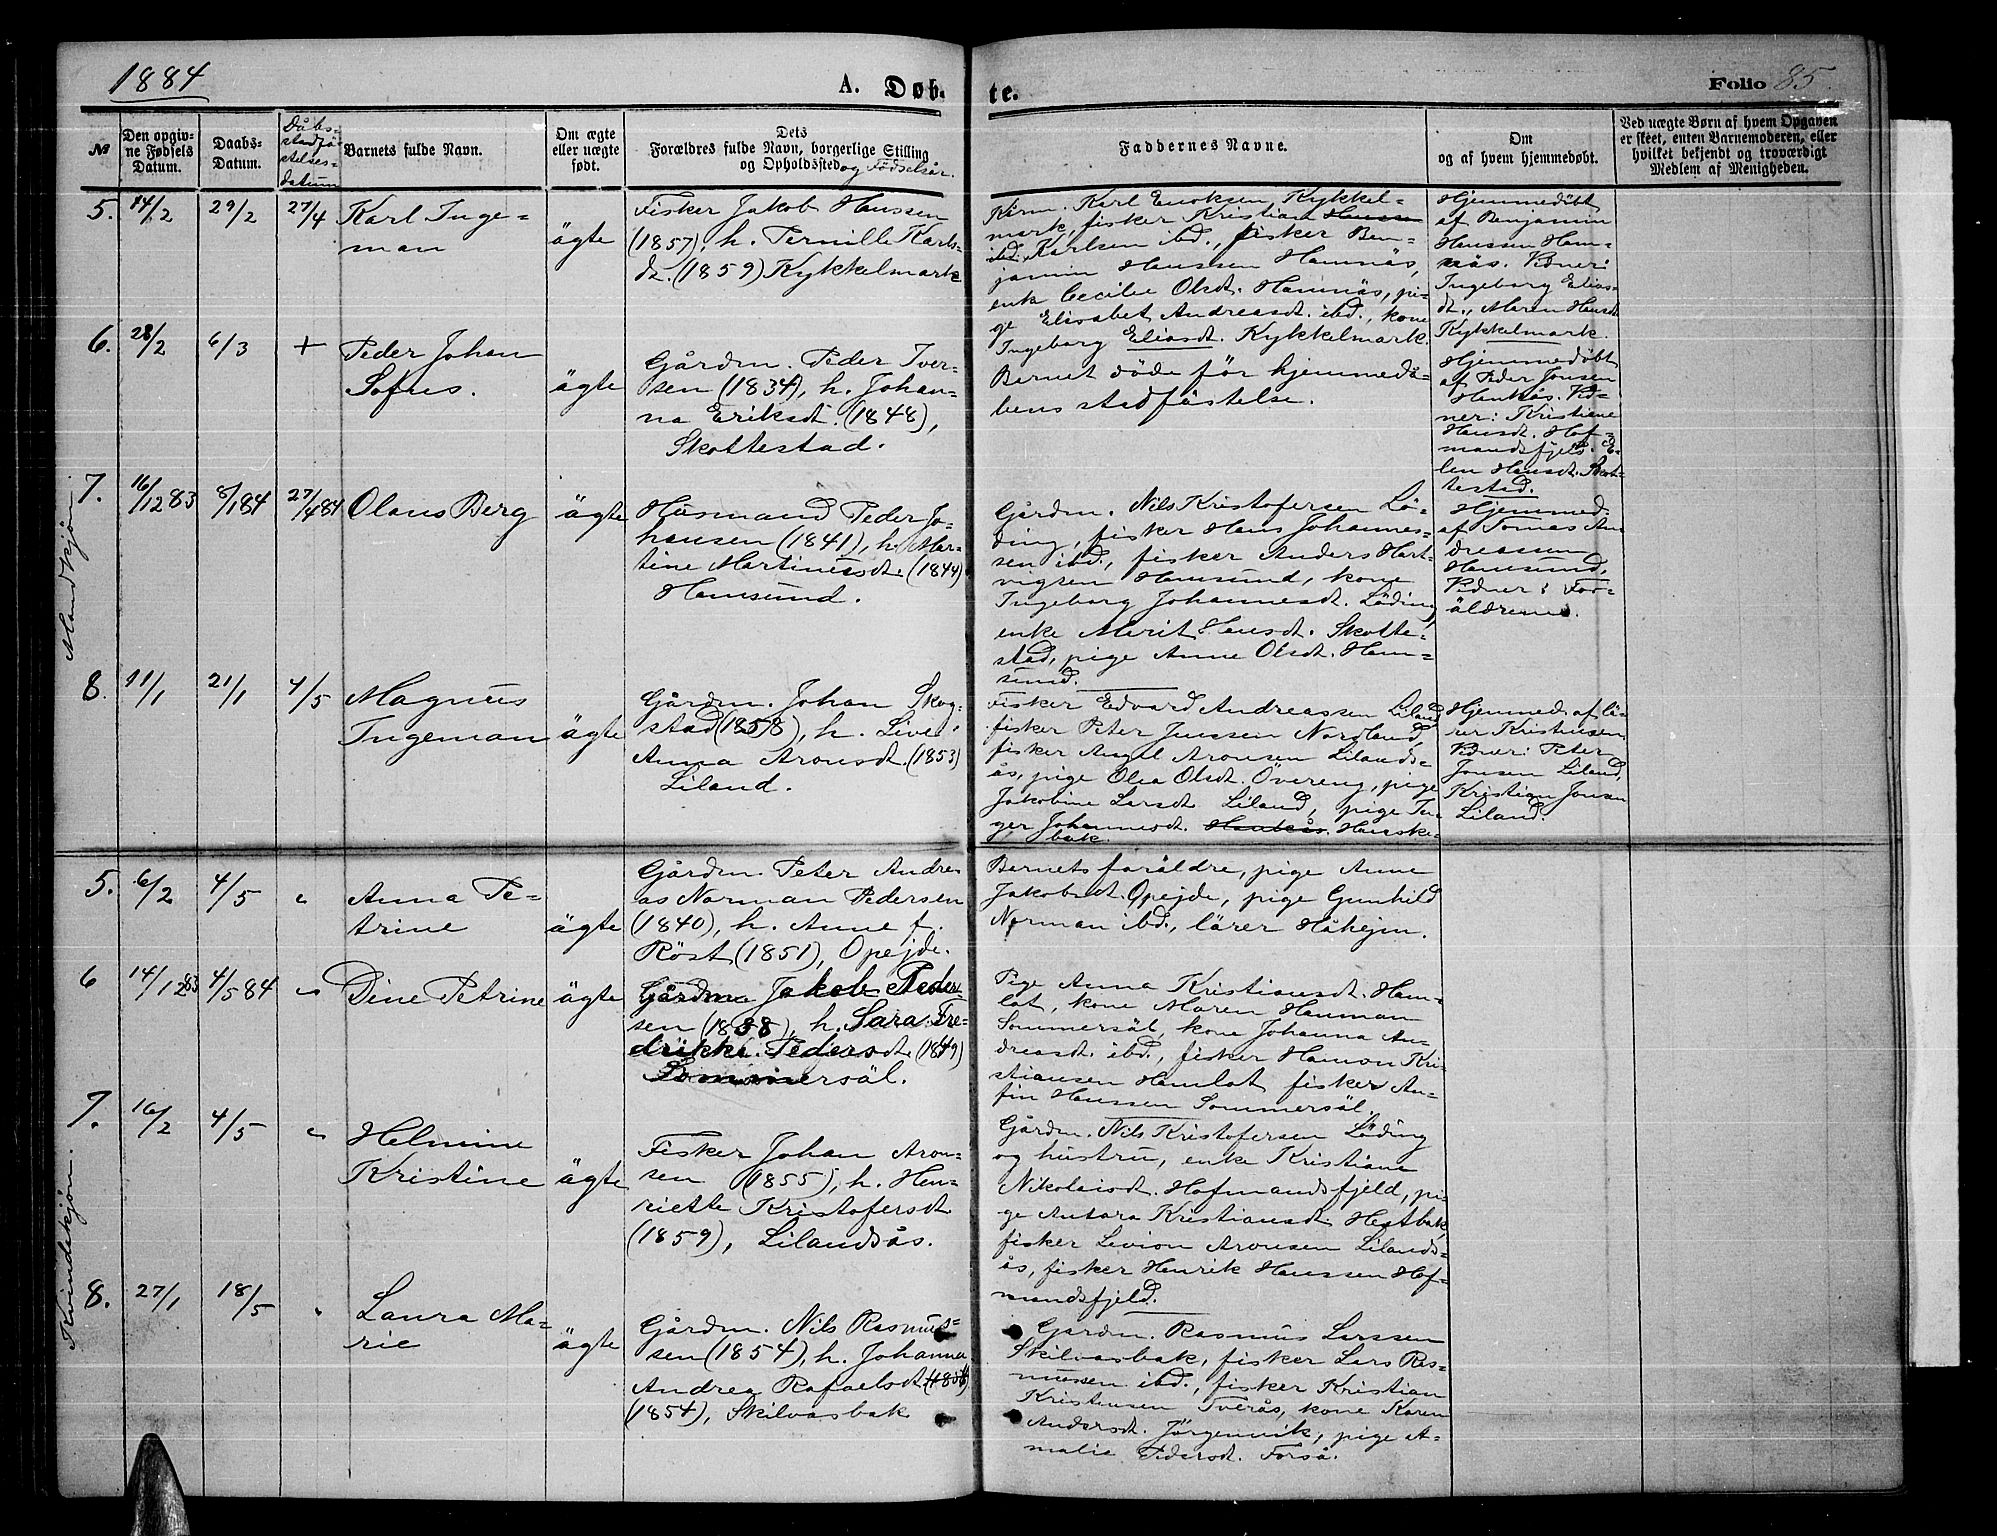 1884
A. Døb-
te.
Folio 85.
№
Den opgiv-
ne Fødsels
Datum.
Daabs-
Datum.
Dåbs-
stadfä-
stelses-
datum
Barnets fulde Navn.
Om ægte
eller uægte
født.
Dets
Forældres fulde Navn, borgerlige Stilling
og Opholdssted og Födselsår.
Faddernes Navne.
Om
og af hvem hjemmedøbt.
Ved uægte Børn af hvem Opgaven
er skeet, enten Barnemoderen, eller
hvilket bekjendt og troværdigt
Medlem af Menigheden.
Mandkjön.
5. 14/2 29/2 27/4
Karl Inge-
man
ägte
Fisker Jakob Hanssen
(1857), h. Pernille Karls-
dt. (1859) Kykkelmark
Karl Enoksen Kykkel-
mark, fisker Kristian Hanssn
ibd. Karlsen ibd., fisker Ben-
jamin Hanssen Hamnäs,
enk Cecilie Olsdt. Hamnäs, pi-
ge Elisabet Andreasdt. ibd., kone
Ingeborg Eliasdt. Kykkelmark.
Hjemmedöbt
af Benjamin
Hanssen Ham-
näs. Vidner:
Ingeborg Elias-
dt., Maren Hansdt.
Kykkelmark.
6. 28/2 6/3 +
Peder Johan
Sofus.
ägte
Gårdm. Peder Iver-
sen (1834), h. Johan-
na Eriksdt. (1848),
Skottestad.
Barnet döde för hjemmedå-
bens stadfästelse.
Hjemmedöbt
af Peder Jonsen
Haukås. Vid-
ner: Kristiane
Hansdt. Hof-
mandsfjeld. E-
len Hansdt. Skot-
testad.
7. 16/12 83 8/1 84 27/4 84
Olaus Berg
ägte
Husmand Peder Jo-
hansen (1841), h. Mar-
tine Martinusdt. (1844)
Hamsund.
Gårdm. Nils Kristofersen Lö-
ding, fisker Hans Johannes-
sen ibd., fisker Anders Hart-
vigsen Hamsund, kone
Ingeborg Johannesdt. Löding,
enke Marit Hansdt. Skotte-
stad, pige Anne Olsdt. Ham-
sund.
Hjemmed.
af Tomas An-
dreassen
Hamsund,
Vidner: For-
äldrene.
8. 11/1 21/1 4/5
Magnus
Ingeman
ägte
Gårdm. Johan Skog-
stad (1858), h. Live
Anna Aronsdt. (1853)
Liland.
Fisker Edvard Andreassen Liland
fisker Peter Jenssen Nordland,
fisker Angel Aronsen Lilands-
ås, pige Olea Olsdt. Övereng, pige
Jakobine Larsdt Liland, pige In-
ger Johannesdt. Haukås. Hanske-
bak.
Hjemmed. af lä-
rer Kristensen
Vidner: Peter
Jonsen Liland,
Kristian Jonsen
Liland.
Kvindekjön.
5. 6/2 4/5 "
Anna Pe-
trine
ägte
Gårdm. Peter Andre-
as Norman Pedersen
(1840), h. Anne f.
Röst (1851), Opejde.
Barnets foräldre, pige Anne
Jakobsdt. Opejde, pige Gunhild
Norman ibd., lärer Håkejm.
6 14/12 83 4/5 84 "
Dine Petrine
ägte
Gårdm. Jakob Peder-
sen (1838), h. Sara Fre-
drikke Pedersdt. (1849)
Sommersäl.
Pige Anna Kristiansdt. Ham-
lot, kone Maren Hamman
Sommersäl, kone Johanna An-
dreasdt. ibd., fisker Hamon Kri-
stiansen Hamlot, fisker An-
fin Hanssen Sommersäl.
7. 16/2 4/5 "
Helmine
Kristine
ägte
Fisker Johan Aron-
sen (1855), h. Hen-
riette Kristofersdt
(1859), Lilandsås.
Gårdm. Nils Kristofersen Löding
og hustru, enke Kristiane
Nikolaisdt. Hofmandsfjeld, pi-
ge Antora Kristiansdt Hestbak,
fisker Levion Aronsen Lilands-
ås, fisker Henrik Hanssen Hof-
mandsfjeld.
8. 27/1 18/5 "
Laura Ma-
rie
ägte
Gårdm. Nils Rasmus-
sen (1854), h. Johanna
Andrea Rafaelsdt.
(1854), Skilvasbak
Gårdm. Rasmus Larssen
Skilvasbak, fisker Lars Ras-
mussen ibd., fisker Kristian
Kristensen Tverås, kone Karen
Andersdt. Jörgenvik, pige A-
malie Pedersdt. Forså.